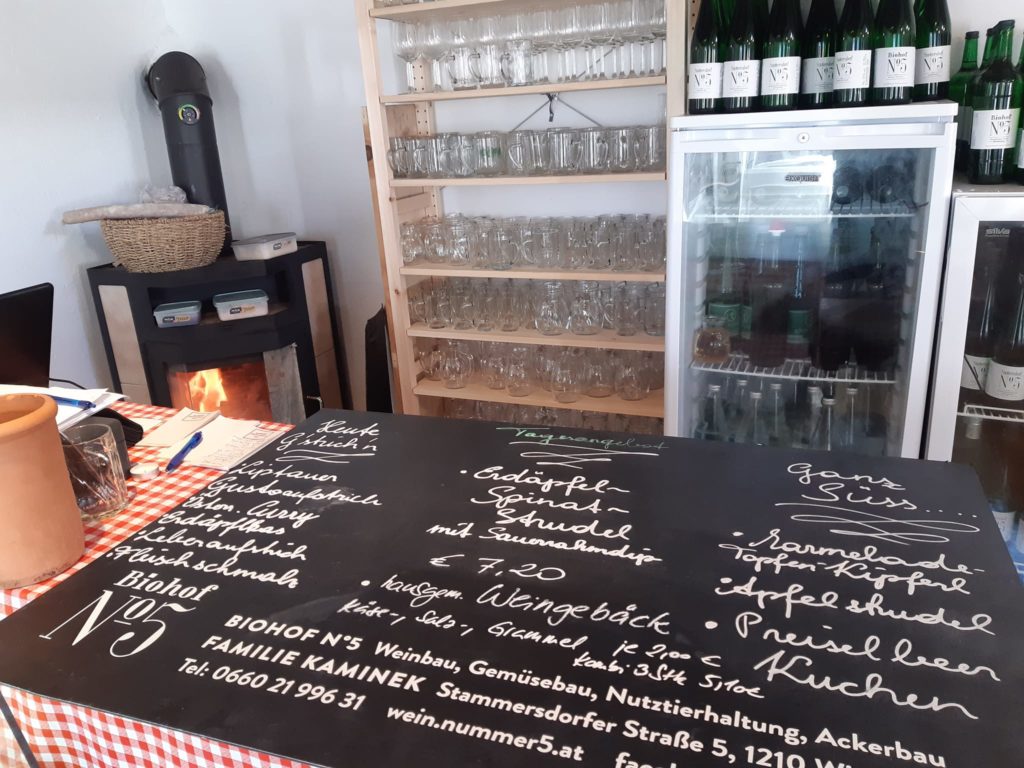 Biohof
Nº5
Biohof
Nº5
Heute
G'strich'n
Liptauer
Gustoaufstrich
Curry
Erdäpflkas
Leberaufstrich
Fleischschmalz
Tagesangebot
• Erdäpfel-
Spinat-
Strudel
mit Sauerrahmdip
€ 7,20
• hausgem. Weingebäck
Käse-, Salz-, Grammel je 2,00 €
Kombi 3 Stk 5,10€
Ganz
Süss.....
• Marmelade-
Topfen-Kipferl
• Apfelstrudel
• Preiselbeer
Kuchen
Biohof
Nº5
BIOHOF Nº5 Weinbau, Gemüsebau, Nutztierhaltung, Ackerbau
FAMILIE KAMINEK Stammersdorfer Straße 5, 1210
Tel: 0660 21 996 31 wein.nummer5.at